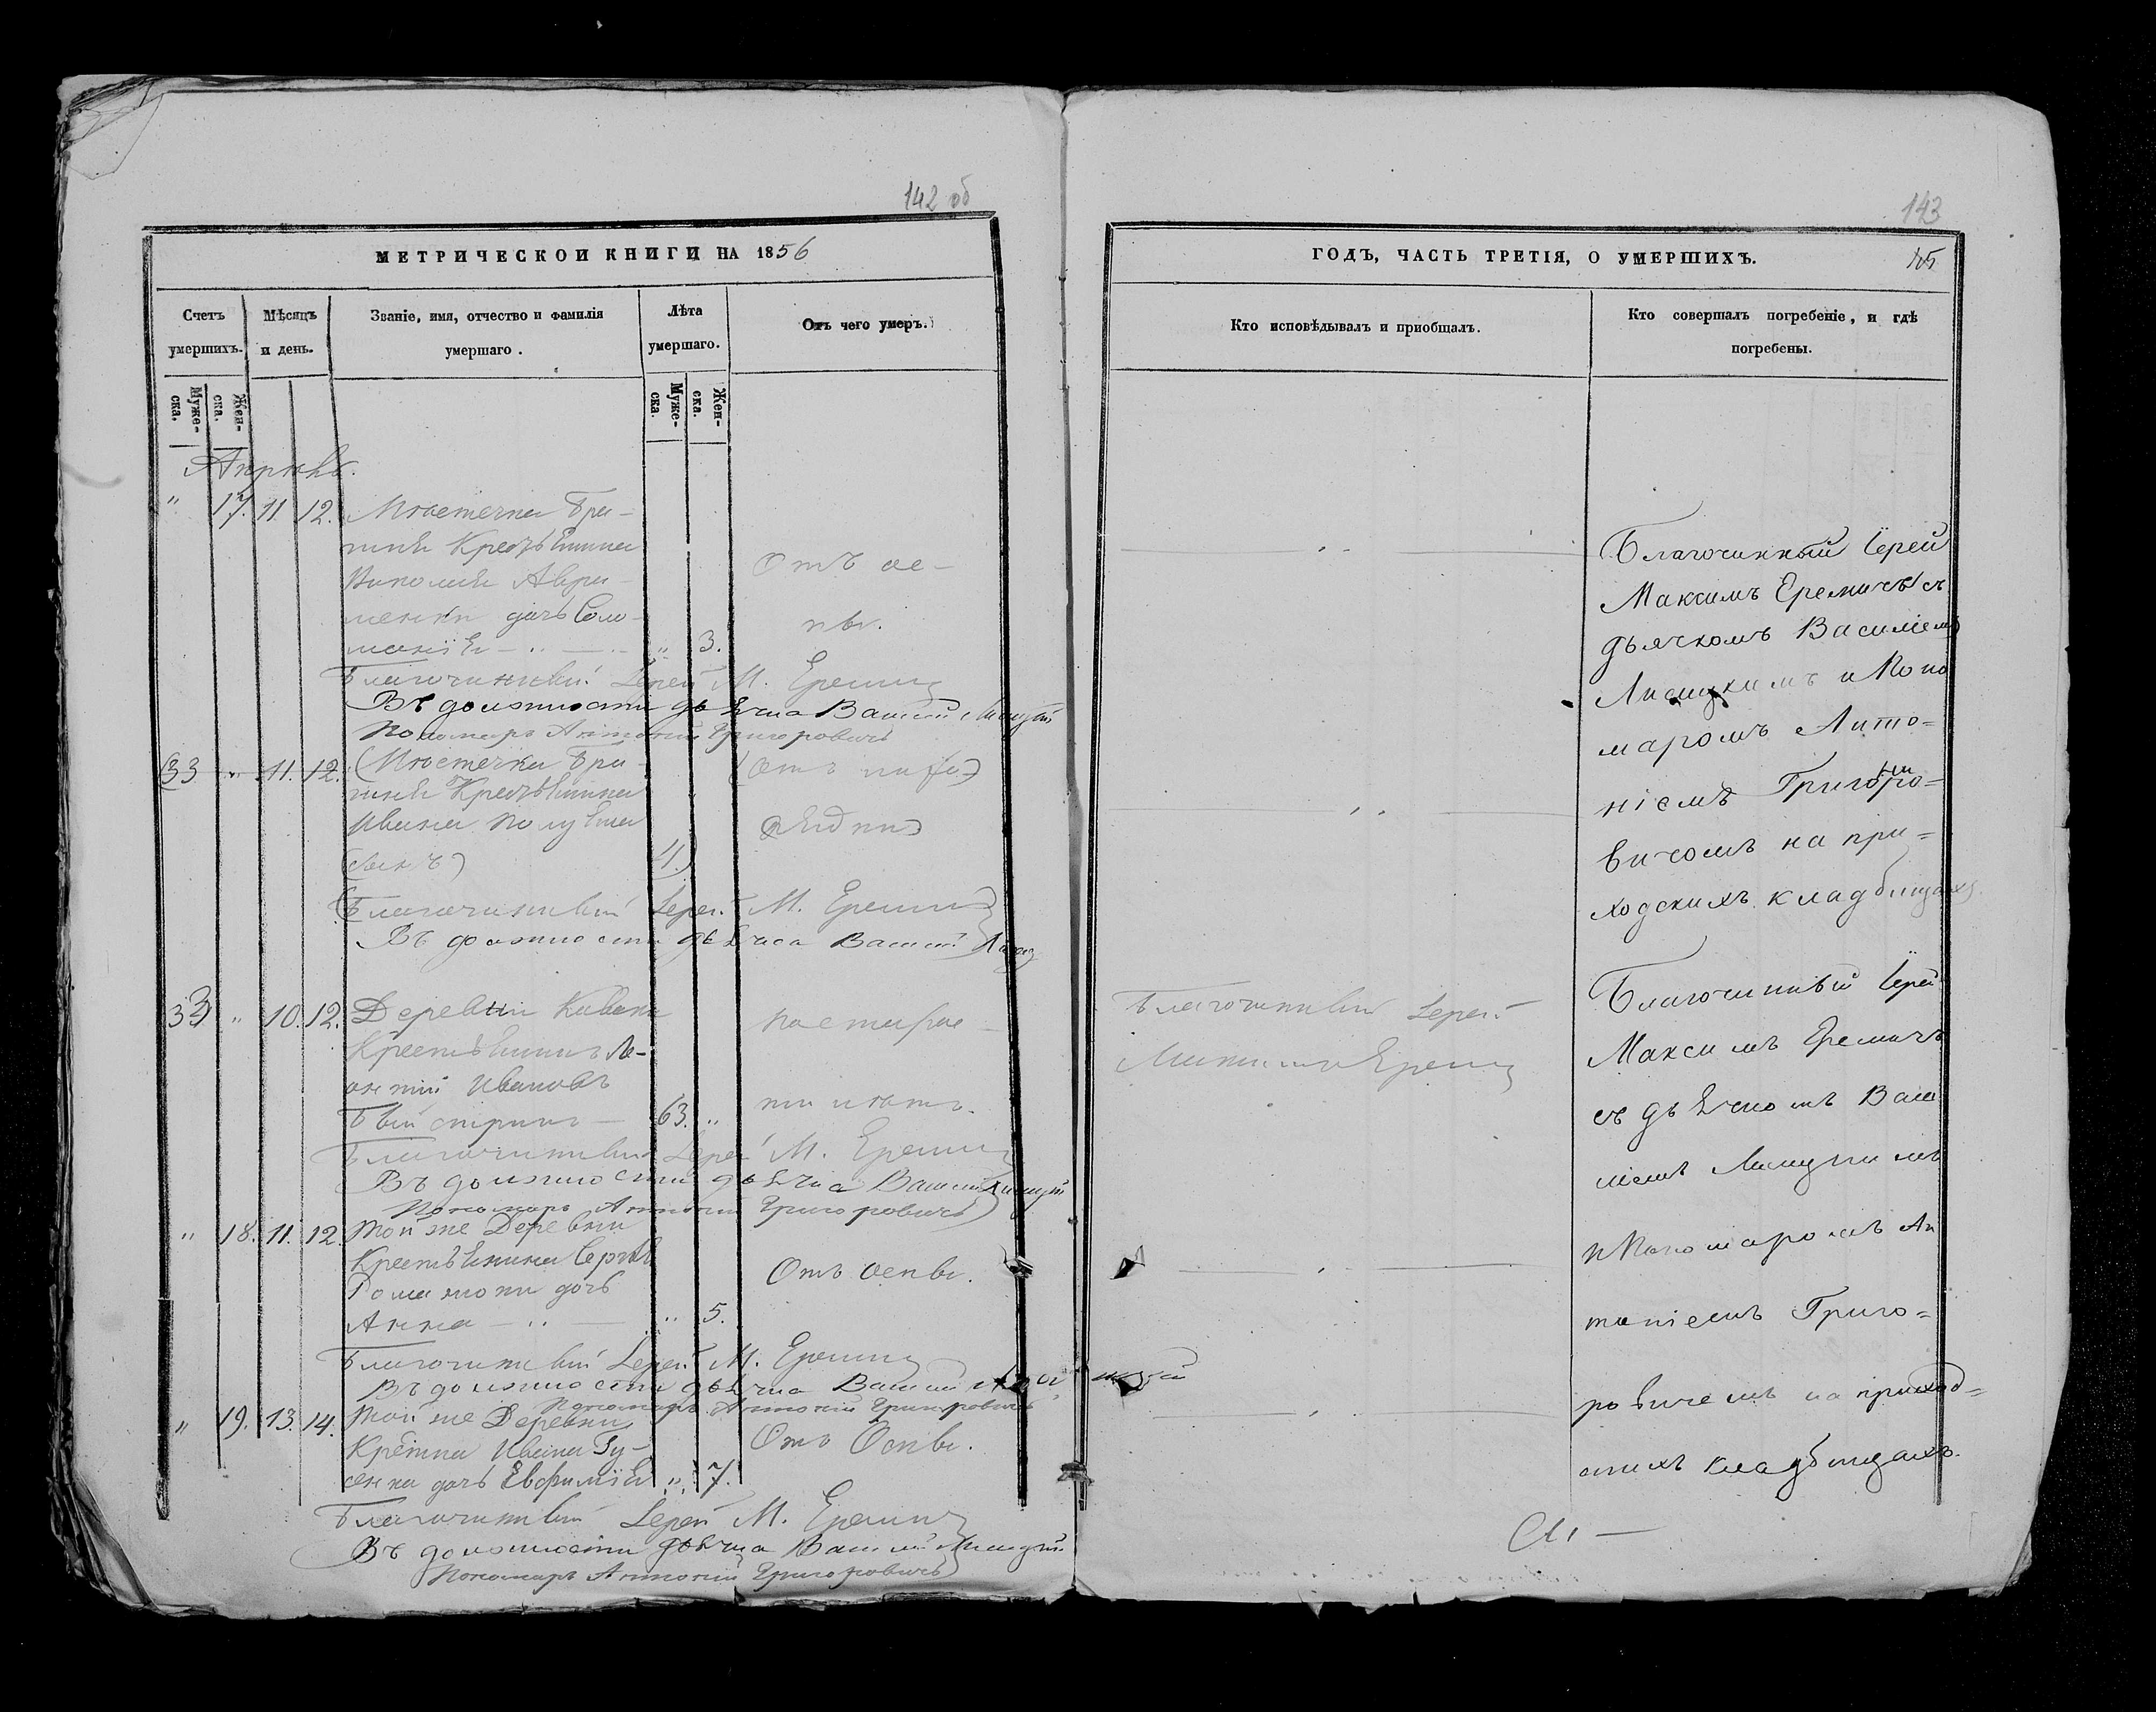 142 об
МЕТРИЧЕСКОЙ КНИГИ НА 1856
Счетъ умершихъ.
Мѣсяцъ и день.
Званіе, имя, отчество и фамилія умершаго.
Лѣта умершаго.
Отъ чего умеръ.
Муже-ска.
Жен-ска.
Муже-ска.
Жен-ска.
Апрѣль.
" 17. 11. 12. Мѣстечка Бра-
гинѣ
Авра-
менки дочь Соло-
монія " 3.
Отъ ос-
пы.
Благочинный Іерей М. Еремич
Въ должности дьячка Василій Лисицкій
Пономаръ Антоній Григоровичъ
33 " 11. 12. (Мѣстечка Бра-
Ивана
сынъ) 4.)
Благочинный Іерей М. Еремич
Въ должности дьячка Василій
33 " 10. 12. Деревни
Крестьянинъ Ле-
онтій Ивановъ
63. "
по старос-
ти лѣтъ.
Благочинный Іерей М. Еремич
Въ должности дьячка Василій Лисицкій
Пономаръ Антоній Григоровичъ
" 18. 11. 12. Той же Деревни
Крестьянина Сергѣя
дочь
Анна " 5.
Отъ оспы.
Благочинный Іерей М. Еремич
Въ должности дьячка Василій Лисицкій
Пономаръ Антоній Григоровичъ
" 19. 13. 14. Той же Деревни
Крестина Ивана Гу-
сенка дочь Евфимія " 7.
Отъ Оспы.
Благочинный Іерей М. Еремич
Въ должности дьячка Василій Лисицкій
Пономаръ Антоній Григоровичъ
143
ГОДЪ, ЧАСТЬ ТРЕТІЯ, О УМЕРШИХЪ.
Кто исповѣдывалъ и приобщалъ.
Кто совершалъ погребеніе, и гдѣ погребены.
Благочинный Іерей
Максимъ Еремичъ съ
дьячкомъ Василіемъ
Лисицкимъ и Поно
маромъ Анто=
ніемъ Григоро=
вичомъ на при=
ходскихъ кладбищахъ.
Благочинный Іерей
Максимъ Еремич
Благочинный Іерей
Максимъ Еремичъ
съ дьячкомъ Васи
ліемъ Лисицкимъ
и Пономаромъ Ан
тоніемъ Григо=
ровичемъ на приход=
скихъ кладбищахъ.